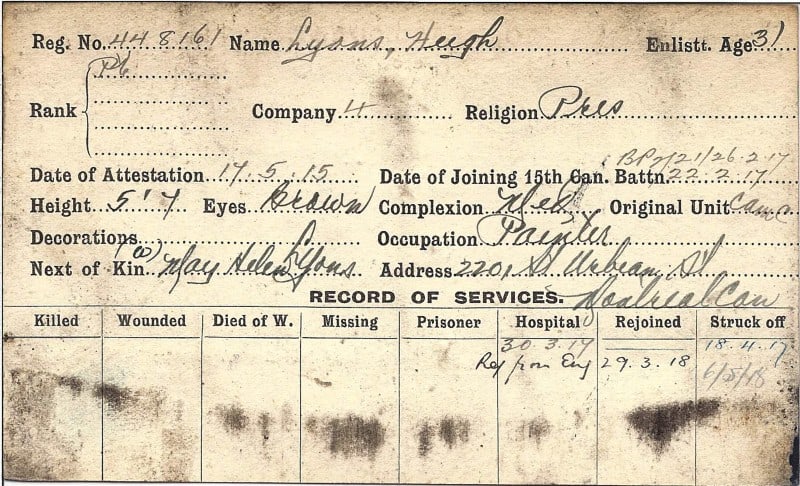 Reg. No. 448161 Name Lyons, Hugh Enlistt. Age 31
Pt
Rank Company 4 Religion Pres
21/26.2.17
Date of Attestation 17.5.15 Date of Joining 15th Can. Battn. 22.2.17
Height 5'7 Eyes Brown Complexion Med Original Unit
Decorations Occupation Painter
Next of Kin (w) May Helen Lyons Address 220, St Urbean St
RECORD OF SERVICES. Montreal Can
Killed Wounded Died of W. Missing Prisoner Hospital Rejoined Struck off
30.3.17 18.4.17
Rej from Eng 29.3.18 6/5/18